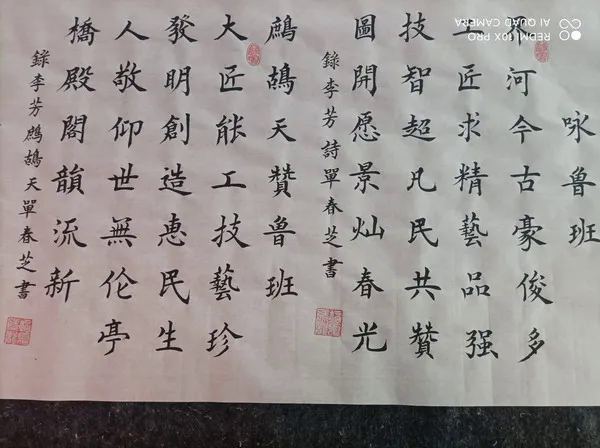 咏鲁班
河今古豪俊多
工匠求精藝品强
技智超凡民共贊
圖開愿景灿春光
錄李芳詩單春芝書
鷓鴣天贊鲁班
大匠能工技藝珍
發明創造惠民生
人敬仰世無伦亭
橋殿閣韻流新
錄李芳鷓鴣天單春芝書
REDMI 10X PRO
AI QUAD CAMERA